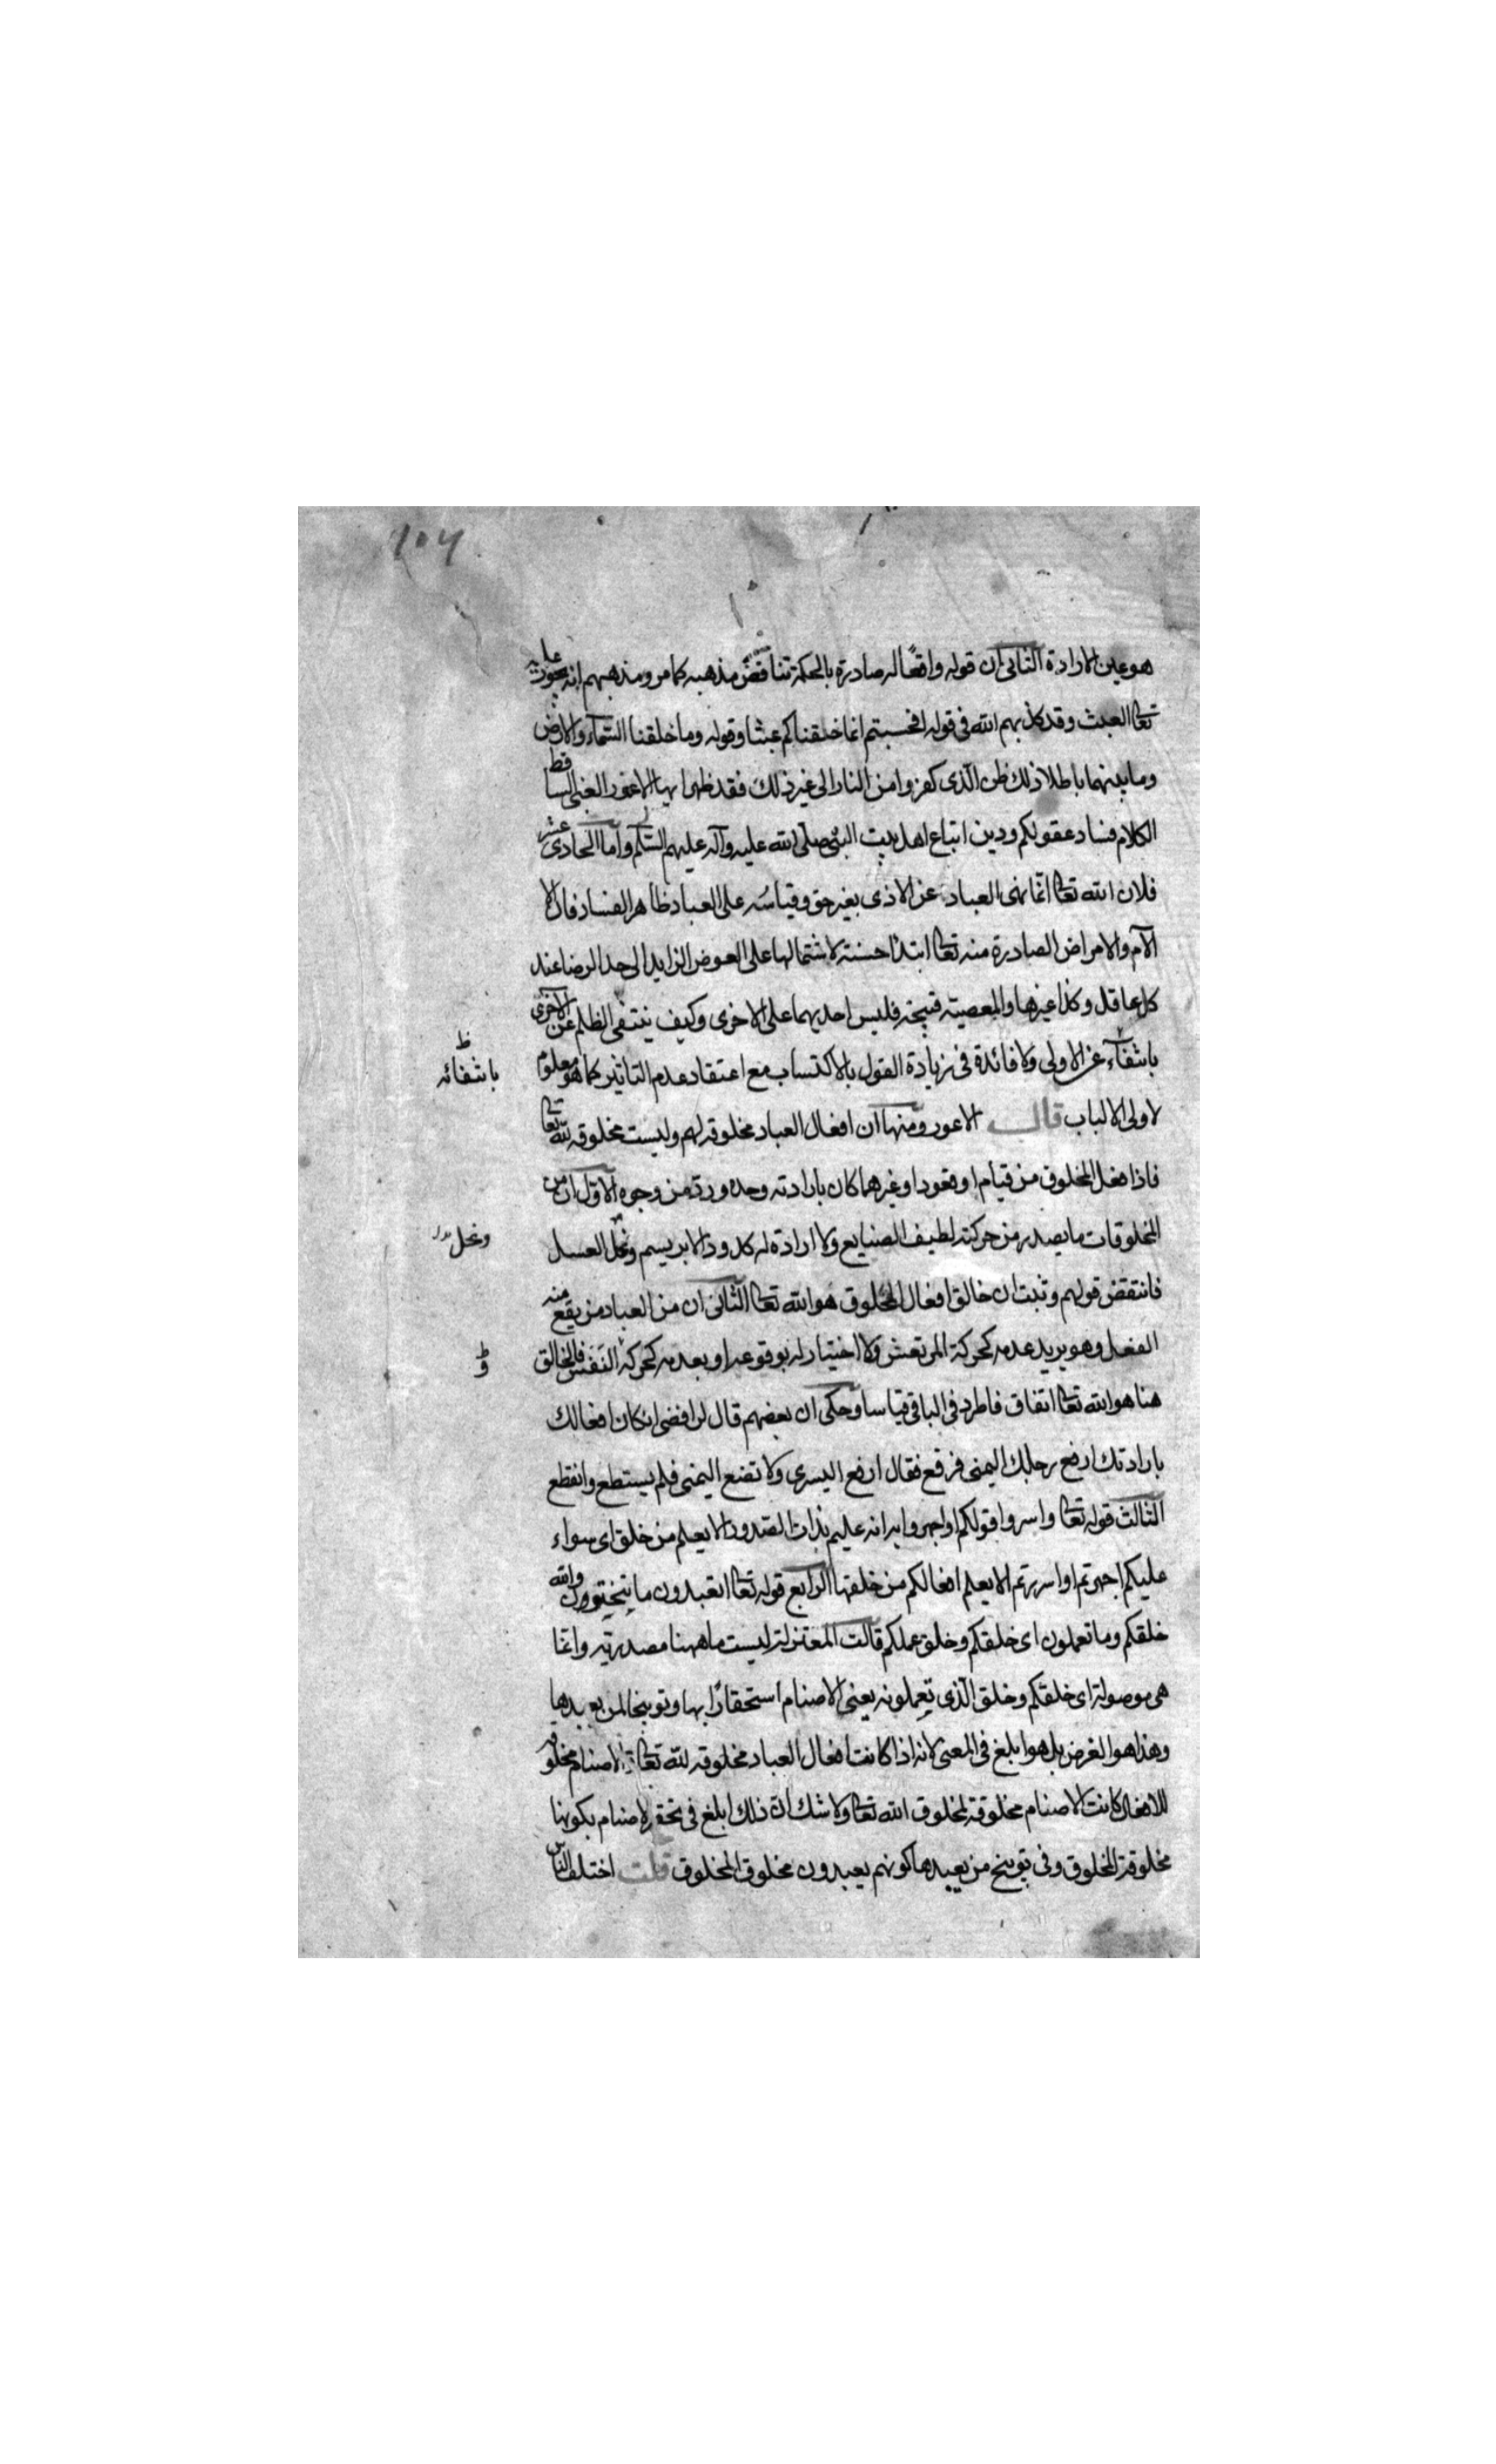 ١٠٧
هو عين الارادة الثانى ان قوله واقعًا له صادرة بالحكمة تناقض مذهبه كما مر ومذهبهم انه يجوز عليه
تعا العبث وقد كذبهم الله فى قوله افحسبتم انما خلقناكم عبثا وقوله وما خلقنا السّمآء والارض
وما بينهما باطلا ذلك ظن الّذى كفروا من النار الى غير ذلك فقد ظهر ايها الاعور الغبى الساقط
الكلام فساد عقولكم ودين اتباع اهل بيت النبىّ صلى الله عليه وآله عليهم السّلم وآما الحادى عشر
فلان الله تعا انّما نهى العباد عن الاذى بغير حق وقياسُه على العباد ظاهر الفساد فان الا
الآم والامراض الصادرة منه تعا ابتدا حسنة لاشتمالها على العوض الزايد الى حد الرضا عند
كل عاقل وكذا غيرها والمعصية قبيحة فليس احديهما على الاخرى وكيف ينتفى الظلم عن الاخرى
بانتفآء عن الاولى ولا فائدة فى زيادة القول بالاكتساب مع اعتقاد عدم التاثير كما هو معلوم
بانتفائه ظ
لاولى الالباب قال الاعور ومنها ان افعال العباد مخلوقة لهم وليست مخلوقة لله تعا
فاذا فعل المخلوق من قيام او قعود او غيرهما كان بارادته وحده وردّ من وجوه الاول ان من
المخلوقات ما يصدر من حركته لطيف الصنايع ولا ارادة له كدود الابريسم ونحل العسل
ونحل بدل
فانتقض قولهم وثبت ان خالق افعال المخلوق هو الله تعا الثانى ان من العباد من يقع منه
الفعل وهو يريد عدمه كحركة المرتعش ولا اختيار له بوقوعه او بعدمه كحركة النفس فالخالق
و ظ
هنا هو الله تعا اتفاق فاطرد فى الباقى قياسا وحكى ان بعضهم قال لرافضى ان كان افعالك
بارادتك ارفع رجلك اليمنى فرفع فقال ارفع اليسرى ولا تضع اليمنى فلم يستطع وانقطع
الثالث قوله تعا واسروا قولكم او اجهروا به انه عليم بذات الصدور الا يعلم من خلق اى سواء
عليكم اجهرتم او اسررتم الا يعلم افعالكم من خلقها الرابع قوله تعا اتعبدون ما تنحتون والله
خلقكم وما تعملون اى خلقكم وخلق عملكم قالت المعتزلة ليست ما ههنا مصدرية وانّما
هى موصولة اى خلقكم وخلق الّذى تعملونه يعنى الاصنام استحقارًا بها وتوبيخا لمن يعبدها
وهذا هو الغرض بل هو ابلغ فى المعنى لانه اذا كانت افعال العباد مخلوقة لله تعا والاصنام مخلوقة
للافعال كانت الاصنام مخلوقة لمخلوق الله تعا ولا شك ان ذلك ابلغ فى تحقير الاصنام بكونها
مخلوقة المخلوق وفى توبيخ من يعبدها كونهم يعبدون مخلوق المخلوق قلت اختلف الناس